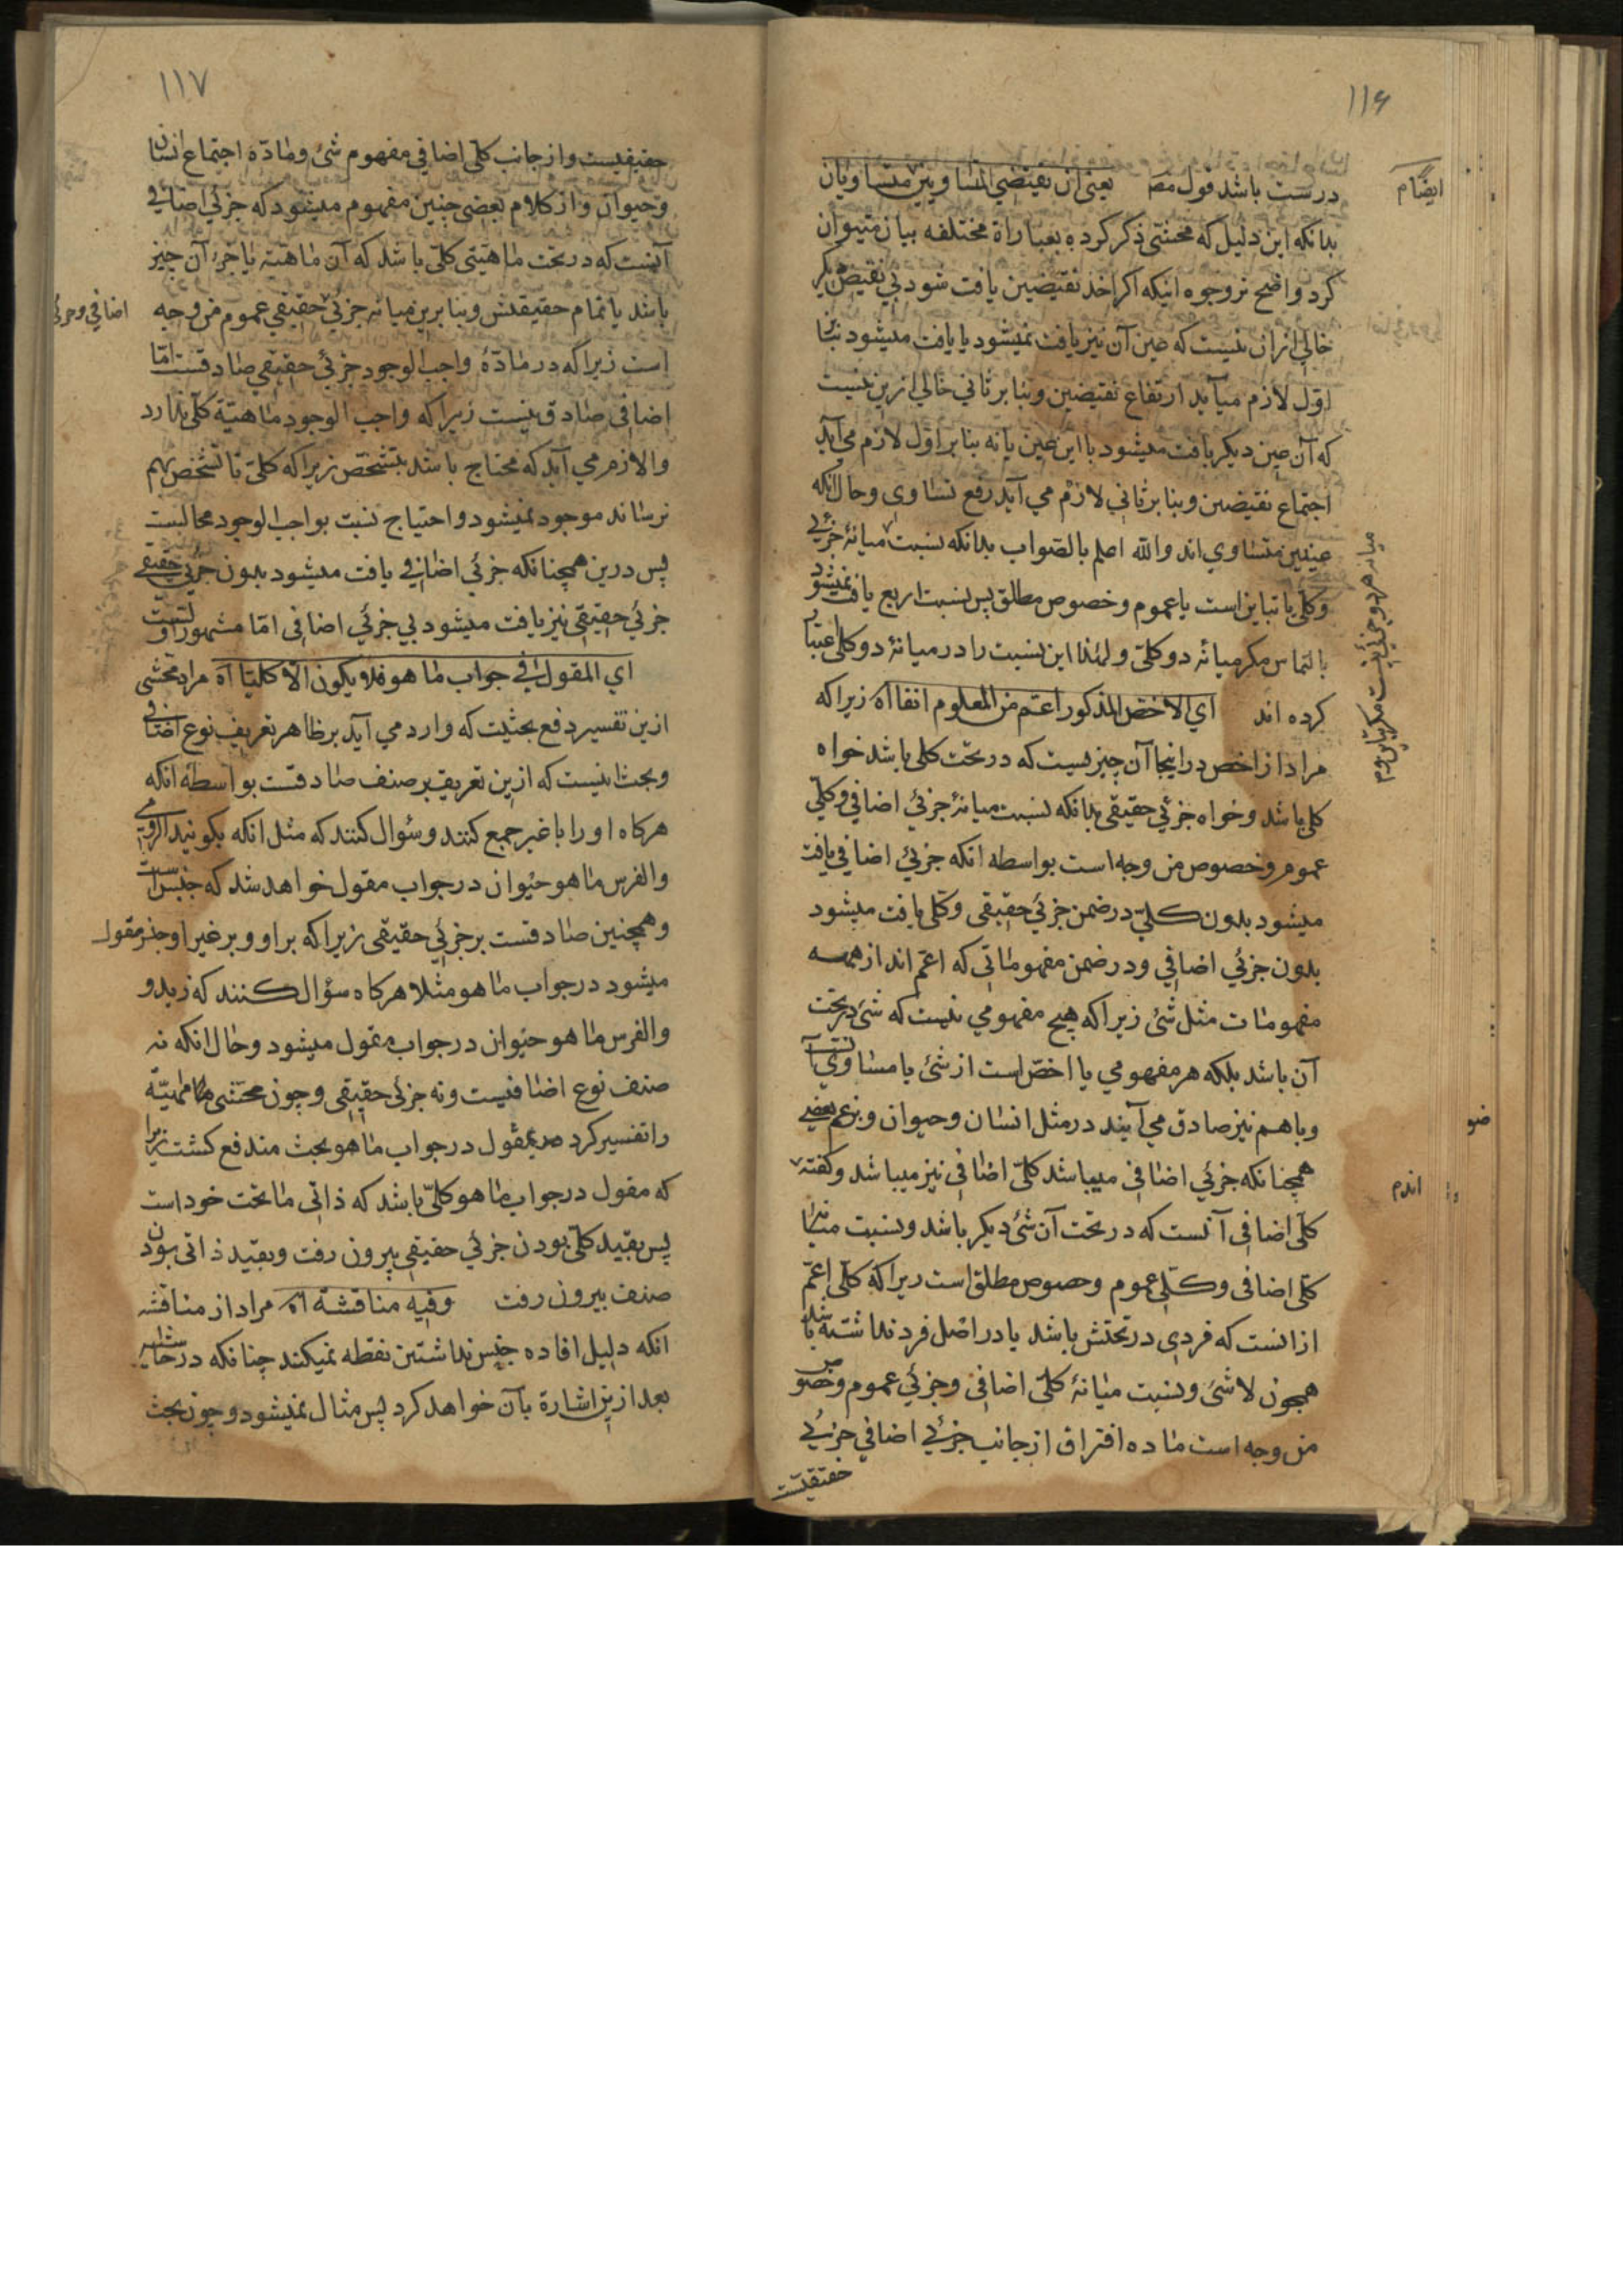 ١١۶
درست باشد قول مصـ يعني ان نقيضي المتساويين متساويان
ايضا م
بدانكه اين دليل كه محشي ذكر كرده بعباراة مختلفه بيان ميتوان
كرد واضح تر وجوه اينكه اكر احد نقيضين يافت شود بي نقيض ديكر
خالي ازان نيست كه عين آن نيز يافت نميشود يا يافت ميشود بنا بر
اول لازم ميآيد ارتفاع نقيضين وبنا بر ثاني خالي ازين نيست
كه آن عين ديكر يافت ميشود با اين عين يا نه بنا بر اول لازم مي آيد
اجتماع نقيضين وبنا بر ثاني لازم مي آيد رفع تساوي وحال انكه
عينين متساوي اند والله اعلم بالصواب بدانكه نسبت ميانۀ جزئي
وكلي يا تباين است يا عموم وخصوص مطلق پس نسبت اربع يافت نميشود
ميانه هر دو جزئي نيست مكر تباين وم
بالتماس مكر ميانه دو كلي ولهذا اين نسبت را در ميانۀ دو كلي اعتبار
كرده اند اي الاخص المذكور اعم من المعلوم انفا اه زيرا كه
مراد از اخص در اينجا آن چيزيست كه در تحت كلي باشد خواه
كلي باشد وخواه جزئي حقيقي بدانكه نسبت ميانۀ جزئي اضافي وكلي
عموم وخصوص من وجه است بواسطه انكه جزئي اضافي يافت
ميشود بدون كلي در ضمن جزئي حقيقي وكلي يافت ميشود
بدون جزئي اضافي ودر ضمن مفهوماتي كه اعم اند از همه
مفهومات مثل شئ زيرا كه هيچ مفهومي نيست كه شئ در تحت
آن باشد بلكه هر مفهومي يا اخص است از شئ يا مساوي
وباهم نيز صادق مي آيند در مثل انسان وحيوان وبزعم بعضي
ضو
همچنانكه جزئي اضافي ميباشد كلي اضافي نيز ميباشد وكفته
اندم
كلي اضافي آنست كه در تحت آن شئ ديكر باشد ونسبت ميانۀ
كلي اضافي وكلي عموم وخصوص مطلق است زيرا كه كلي اعم
ازانست كه فردي در تحتش باشد يا در اصل فرد نداشته باشد
همچون لاشئ ونسبت ميانۀ كلي اضافي وجزئي عموم وخصوص
من وجه است ماده افتراق از جانب جزئي اضافي جزئي
حقيقيست
١١٧
حقيقيست واز جانب كلي اضافي مفهوم شئ ومادّه اجتماع انسان
وحيوان واز كلام بعضي چنين مفهوم ميشود كه جزئي اضافي
آنست كه در تحت ماهيتي كلي باشد كه آن ماهيته يا جزء آن چيز
باشد يا تمام حقيقتش وبنا برين ميانه جزئي حقيقي عموم من وجه
اضافي وجزئي
است زيرا كه در مادّۀ واجب الوجود جزئي حقيقي صادقست امّا
اضافي صادق نيست زيرا كه واجب الوجود ماهيّة كلي ندارد
والا لازم مي آيد كه محتاج باشد بتشخص زيرا كه كلي تا تشخص بهم
نرساند موجود نميشود واحتياج نسبت بواجب الوجود محالست
پس درين همچنانكه جزئي اضافي يافت ميشود بدون جزئي حقيقي
جزئي حقيقي نيز يافت ميشود بي جزئي اضافي امّا مشهور اولست
اي المقول في جواب ما هو فلا يكون الا كليّا اه مراد محشي
ازين تفسير دفع بحثيست كه وارد مي آيد بر ظاهر تعريف نوع اضافي
وبحث اينست كه ازين تعريف بر صنف صادقست بواسطه انكه
هركاه اورا با غير جمع كنند وسؤال كنند كه مثل انكه بكويند الرومي
والفرس ما هو حيوان در جواب مقول خواهد شد كه جنس است
وهمچنين صادقست بر جزئي حقيقي زيرا كه بر او وبر غير او جنس مقول
ميشود در جواب ما هو مثلا هركاه سؤال كنند كه زيد و
والفرس ما هو حيوان در جواب مقول ميشود وحال انكه نه
صنف نوع اضافيست ونه جزئي حقيقي وچون محشي ماهيّة
را تفسير كرد بمقول در جواب ما هو بحث مندفع كشت زيرا
كه مقول در جواب ما هو كلي باشد كه ذاتي ما تحت خود است
پس بقيد كلي بودن جزئي حقيقي بيرون رفت وبقيد ذاتي بودن
صنف بيرون رفت وفيه مناقشة اه مراد از مناقشه
انكه دليل افاده جنس نداشتن نقطه نميكند چنانكه در حاشيه
بعد ازين اشارة بآن خواهد كرد پس مثال نميشود وچون بحث